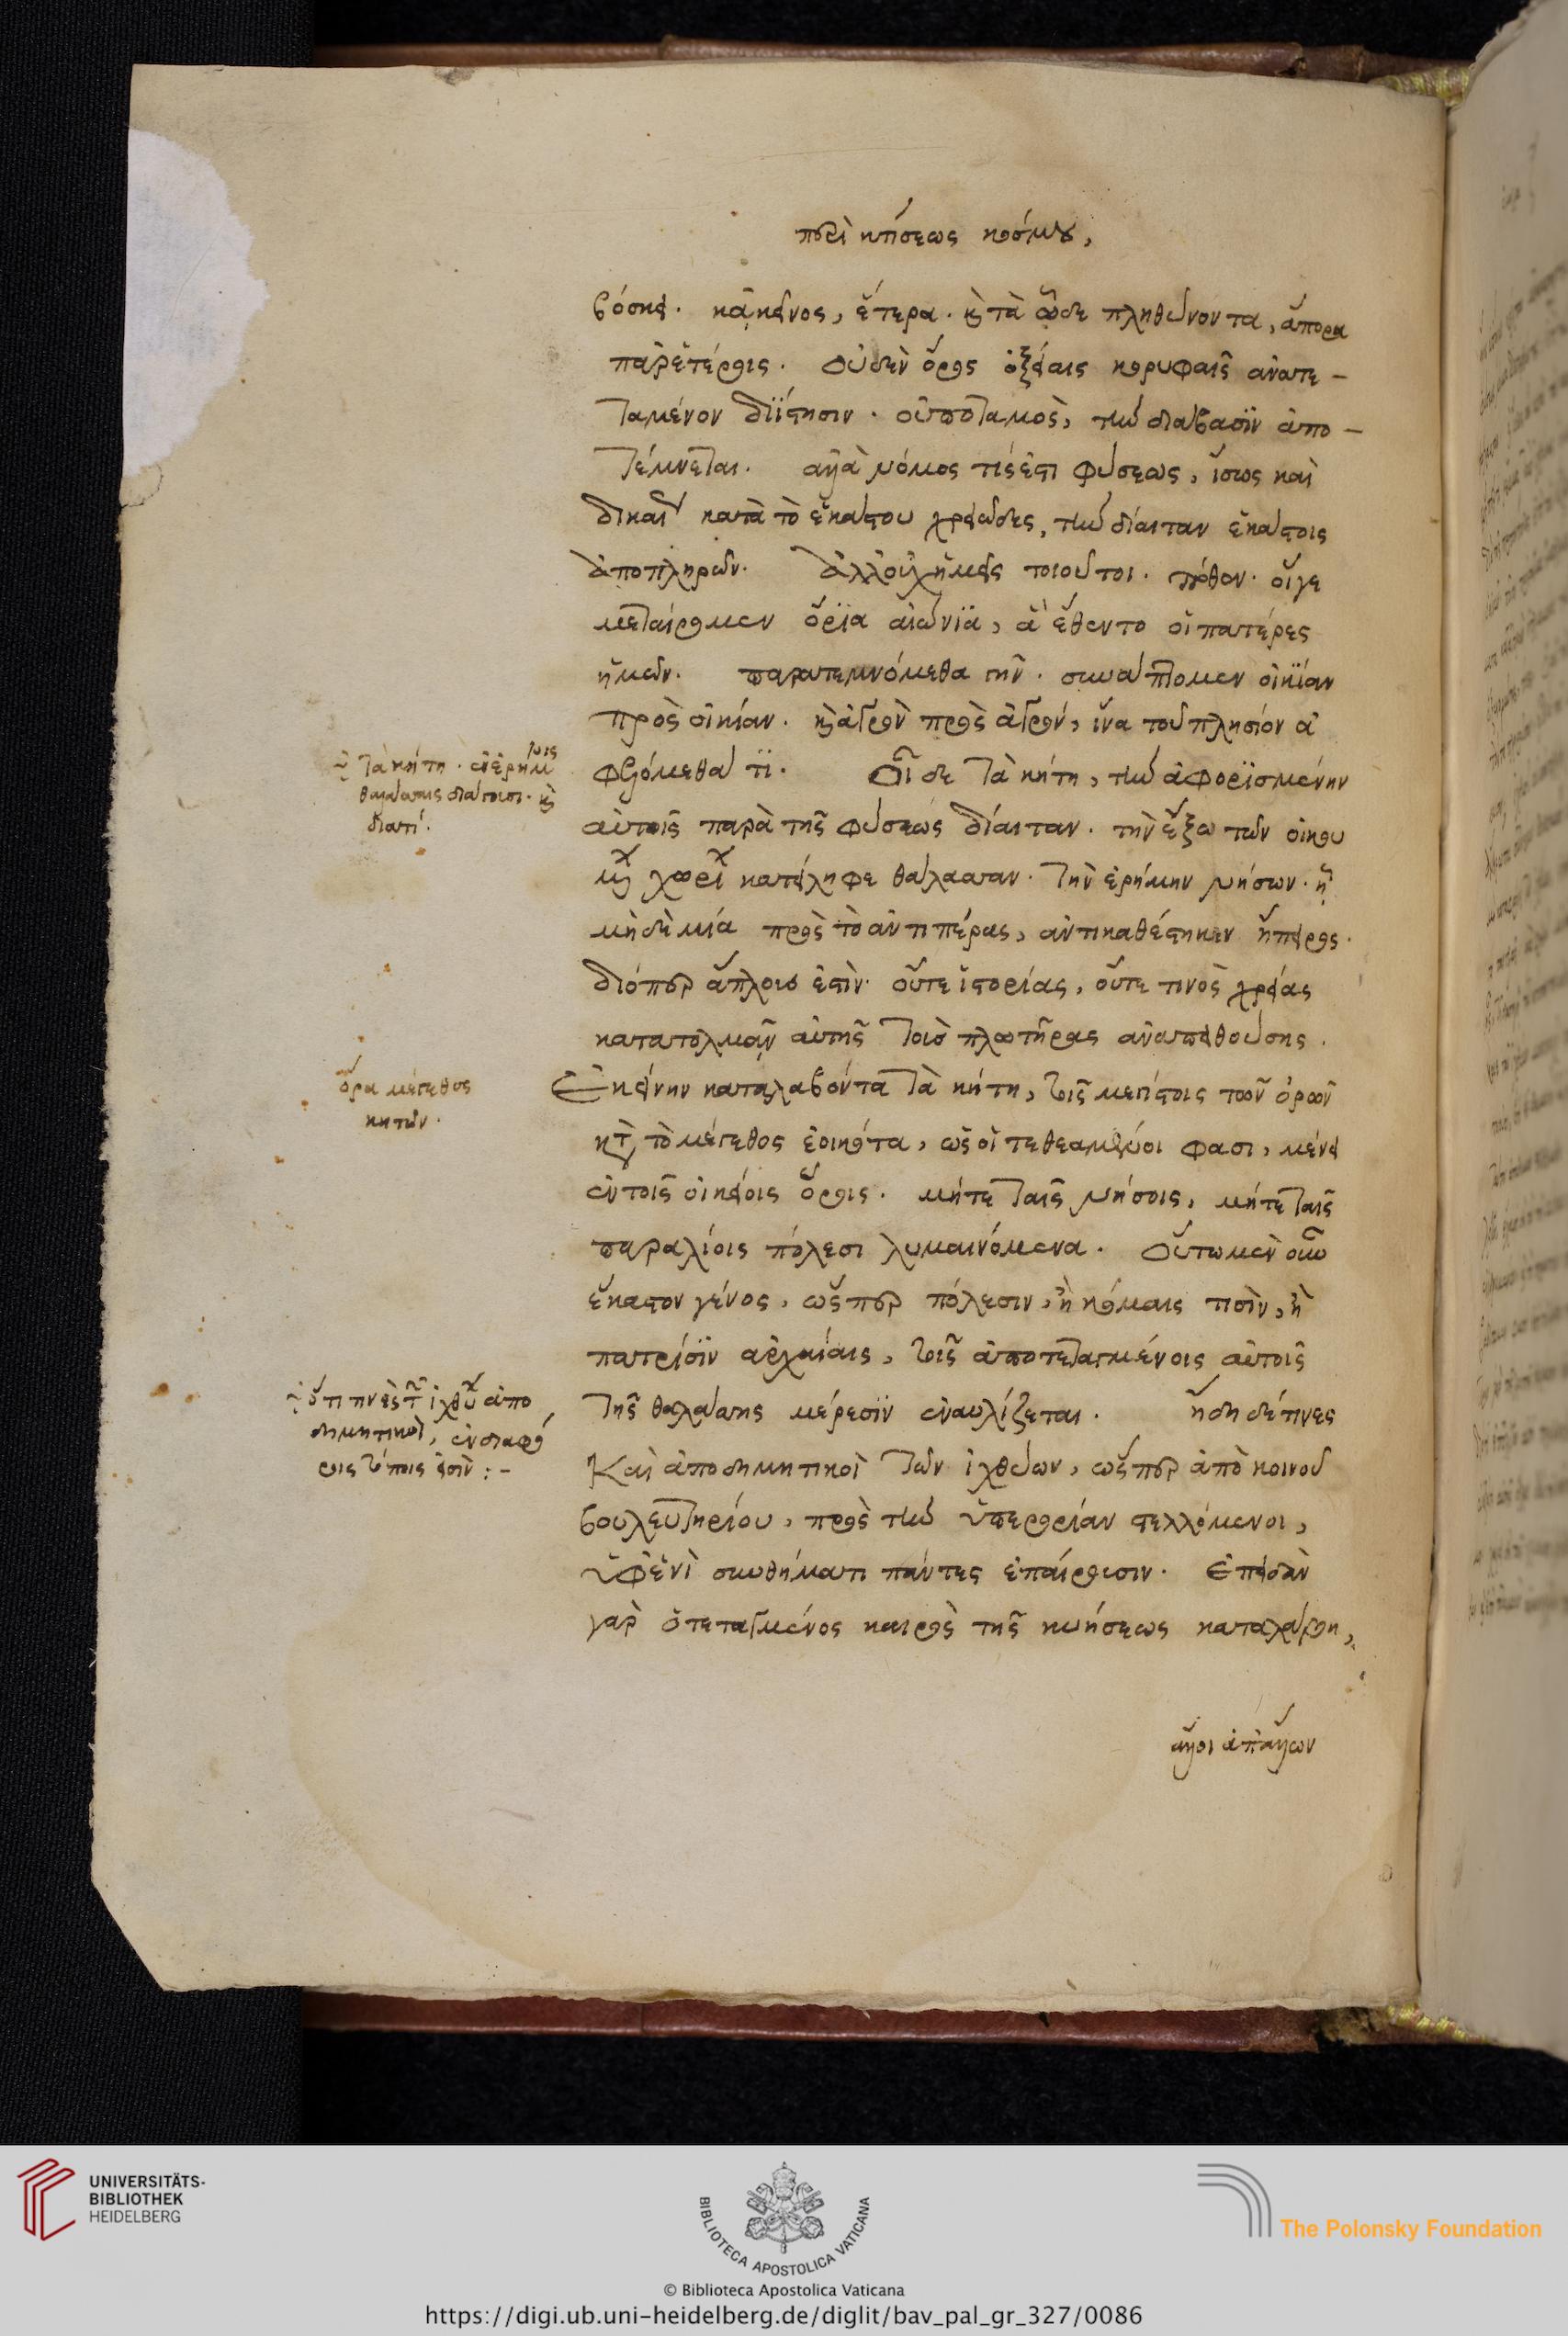 περὶ κτίσεως κόσμου,
βόσκει. κἀκεῖνος, ἕτερα. καὶ τὰ ὧδε πληθύνοντα, ἄπορα
παρ' ἑτέροις. οὐδὲν ὄρος ὀξείαις κορυφαῖς ἀνατε-
ταμένον διΐστησιν. οὐ ποταμὸς, τὴν διάβασϊν ἀπο-
τέμνεται. ἀλλὰ νόμος τίς ἐστι φύσεως, ἴσως καὶ
δικαί κατὰ τὸ ἑκάστου χρειῶδες, τὴν δίαιταν ἑκάστοις
ἀποπληρῶν. ἀλλ' οὐχ ἡμεῖς τοιοῦτοι. πόθεν. οἵγε
μεταίρομεν ὅρϊα αἰώνϊα, ἃ ἔθεντο οἱ πατέρες
ἡμῶν. παρατεμνόμεθα γῆν. συνάπτομεν οἰκίαν
πρὸς οἰκίαν. καὶ ἀγρὸν πρὸς ἀγρόν, ἵνα τοῦ πλησίον ἀ
φελόμεθά τϊ. Οἶδε τὰ κήτη, τὴν ἀφορϊσμένην
αὐτοῖς παρὰ τῆς φύσεως δίαιταν. τὴν ἔξω τῶν οἰκου
μ χωρί κατείληφε θάλασσαν. τὴν ἐρήμην νήσων. ᾗ
μὴδὲ μία πρὸς τὸ ἀντιπέρας, ἀντικαθέστηκεν ἤπειρος.
διόπερ ἄπλους ἐστὶν. οὔτε ἱστορίας, οὔτε τινὸς χρείας
κατατολμᾷν αὐτῆς τοὺς πλωτῆρας ἀναπειθούσης.
Ἐκείνην καταλαβόντα τὰ κήτη, τοῖς μεγίστοις τῶν ὀρῶν
κατὰ τὸ μέγεθος ἐοικότα, ὡς οἱ τεθεαμένοι φασι, μένει
ἐν τοῖς οἰκείοις ὅροις. μήτε ταῖς νήσοις, μήτε ταῖς
παραλίοις πόλεσι λυμαινόμενα. Οὕτω μὲν οὖν
ἕκαστον γένος, ὥσπερ πόλεσιν, ἢ κώμαις τισὶν, ἢ
πατρίσϊν ἀρχαίαις, τοῖς ἀποτεταγμένοις αὐτοῖς
τῆς θαλάσσης μέρεσϊν ἐναυλίζεται. ἤδη δέ τινες
Καὶ ἀποδημητικοὶ τῶν ἰχθύων, ὥσπερ ἀπὸ κοινοῦ
βουλευτηρίου, πρὸς τὴν ὑπερορίαν στελλόμενοι,
ὑφ' ἑνὶ συνθήματι πάντες ἐπαίρουσιν. Ἐπειδὰν
γὰρ ὁ τεταγμένος καιρὸς τῆς κινήσεως καταλάβῃ,
ἄλλοι ἀπ' ἄλλων
τὰ κήτη. ἐν ἐρήμοις
θαλάσσαις διάγουσι. καὶ
διατί.
ὅρα μέγεθος
κητῶν.
ὅτι τινὲς τῶν ἰχθύ ἀπο
δημητικοὶ, ἐν διαφό
ροις τόποις εἰσὶν :-
UNIVERSITÄTS-
BIBLIOTHEK
HEIDELBERG
BIBLIOTECA APOSTOLICA VATICANA
The Polonsky Foundation
© Biblioteca Apostolica Vaticana
https://digi.ub.uni-heidelberg.de/diglit/bav_pal_gr_327/0086